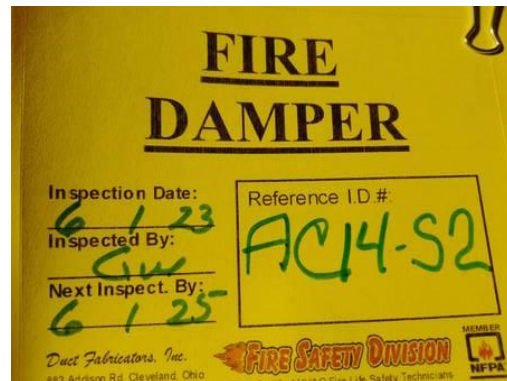 FIRE
DAMPER
Inspection Date:
6 1 23
Inspected By:
GW
Next Inspect. By:
6 1 25
Reference I.D.#:
AC14-S2
Duct Fabricators, Inc.
883 Addison Rd. Cleveland, Ohio
FIRE SAFETY DIVISION
Fire Life Safety Technicians
MEMBER
NFPA